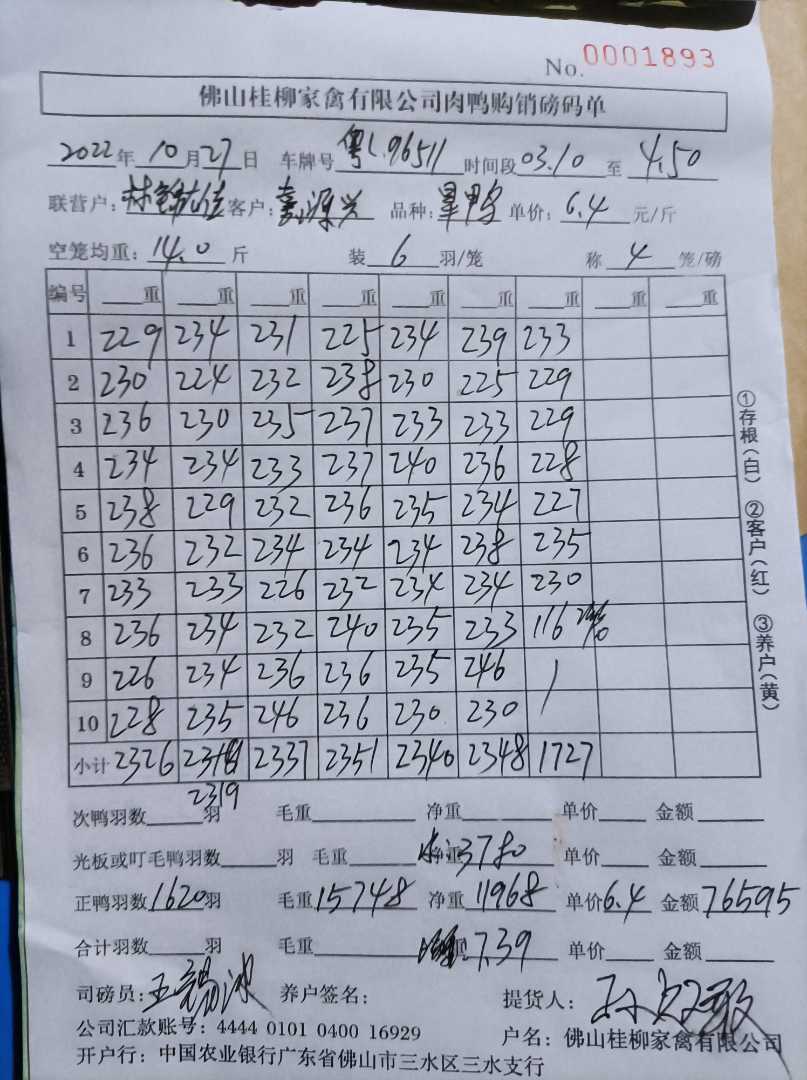 No. 0001893
佛山桂柳家禽有限公司肉鸭购销磅码单
2022年 10月27日 车牌号 粤L.96511 时间段 03.10 至 4.50
联营户: 林 客户: 源兴 品种: 单价: 6.4 元/斤
空笼均重: 14.0 斤 装 6 羽/笼 称 4 笼/磅
编号 重 重 重 重 重 重 重 重 重
1 229 234 231 225 234 239 233
2 230 224 232 238 230 225 229
3 236 230 235 237 233 233 229
4 234 234 233 237 240 236 228
5 238 229 232 236 235 234 227
6 236 232 234 234 234 238 235
7 233 233 226 232 234 234 230
8 236 234 232 240 235 233 116
9 226 234 236 236 235 246 /
10 228 235 246 236 230 230
小计 2326 2319 2337 2351 2340 2348 1727
①存根(白) ②客户(红) ③养户(黄)
次鸭羽数 羽 毛重 净重 单价 金额
光板或叮毛鸭羽数 羽 毛重 净重 3780 单价 金额
正鸭羽数 1620 羽 毛重 15748 净重 11968 单价 6.4 金额 76595
合计羽数 羽 毛重 7.39 单价 金额
司磅员: 王锡波 养户签名: 提货人:
公司汇款账号: 4444 0101 0400 16929 户名: 佛山桂柳家禽有限公司
开户行: 中国农业银行广东省佛山市三水区三水支行